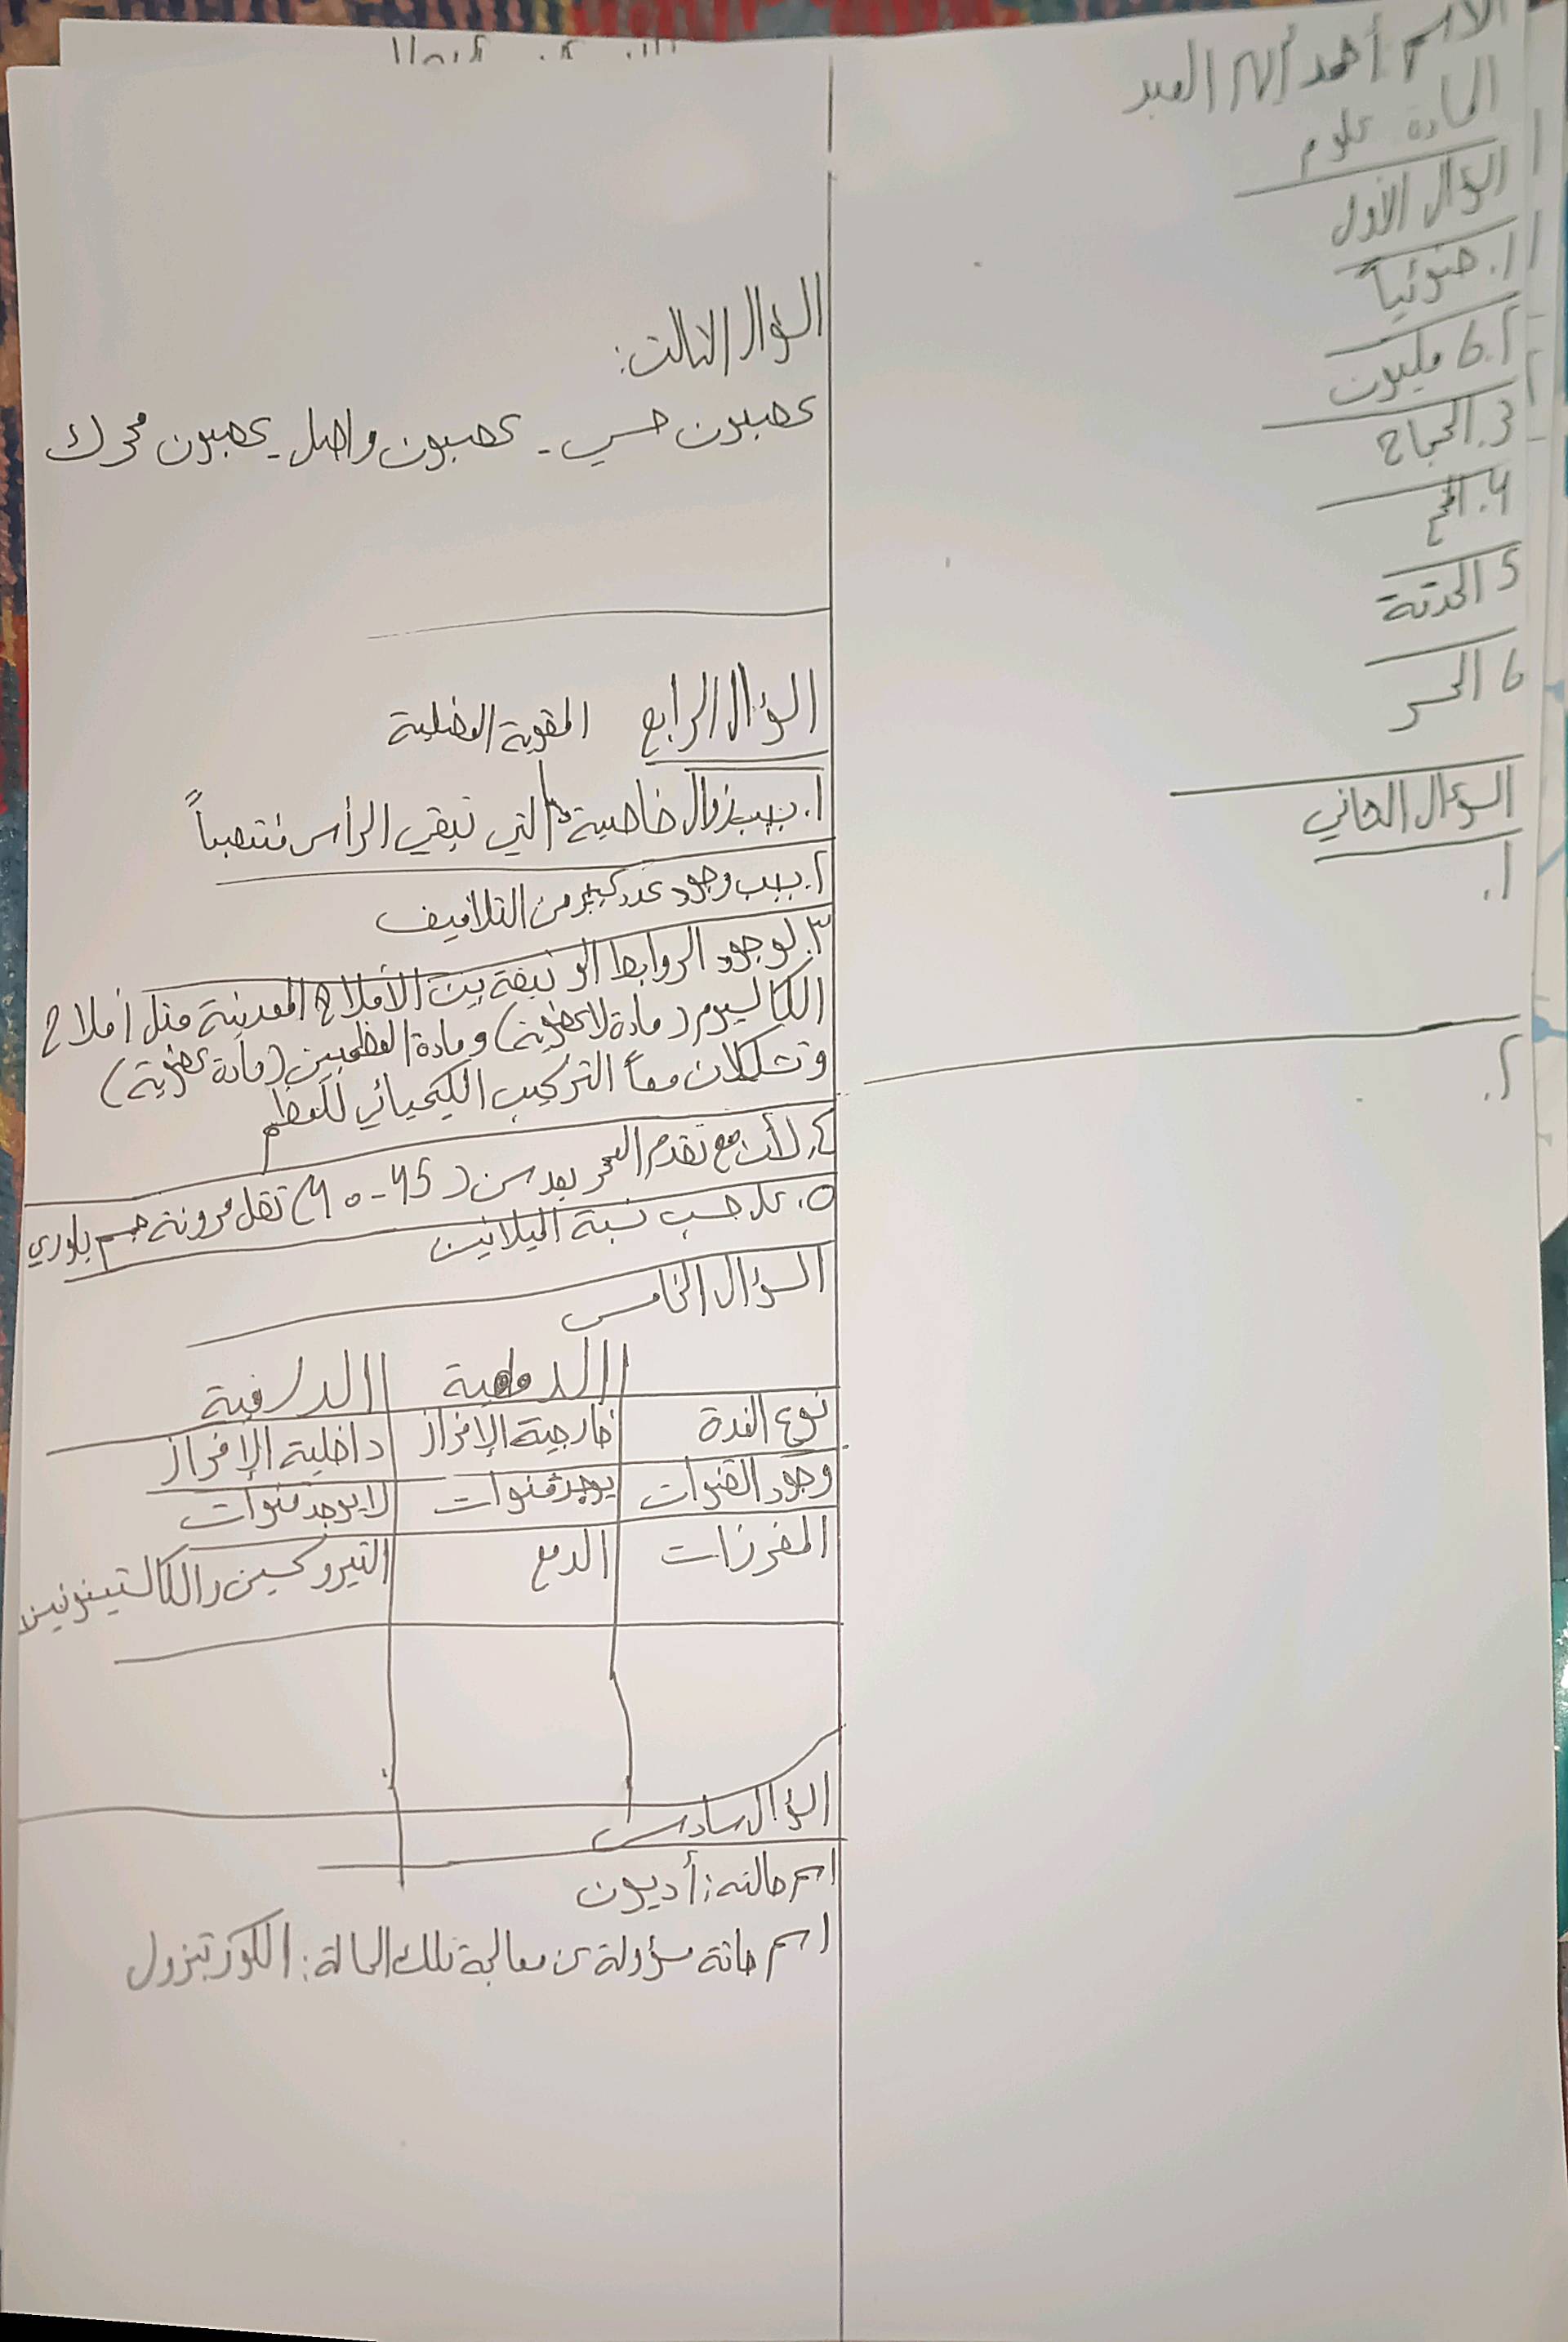 الاسم أحمد العبد
المادة علوم
السؤال الأول
1. ضوئياً
2. 6 مليون
3. الحجاج
4. المخ
5 الحدقة
6 الحسر
السؤال الثاني
1.
2.
السؤال الثالث:
عصبون حسي - عصبون واصل - عصبون محرك
السؤال الرابع المقوية العضلية
1. بسبب زوال خاصية التي تبقي الرأس منتصباً
2. بسبب وجود عدد كبير من التلافيف
3. لوجود الروابط الوثيقة بين الأملاح المعدنية مثل أملاح
الكالسيوم (مادة لاعضوية) ومادة العظميين (مادة عضوية)
وتشكلان معاً التركيب الكيميائي للعظم
4. لأن مع تقدم العمر بعد سن (45 - 40) تقل مرونة جسم بلوري
5. على حسب نسبة الميلانين
السؤال الخامس
الدمعية الدرقية
نوع الغدة خارجية الإفراز داخلية الإفراز
وجود القنوات يوجد قنوات لا يوجد قنوات
المفرزات الدمع التيروكسين والكالسيتونين
السؤال سادس
اسم حالته: أديسون
اسم حاثة مسؤولة عن معالجة تلك الحالة: الكورتيزول